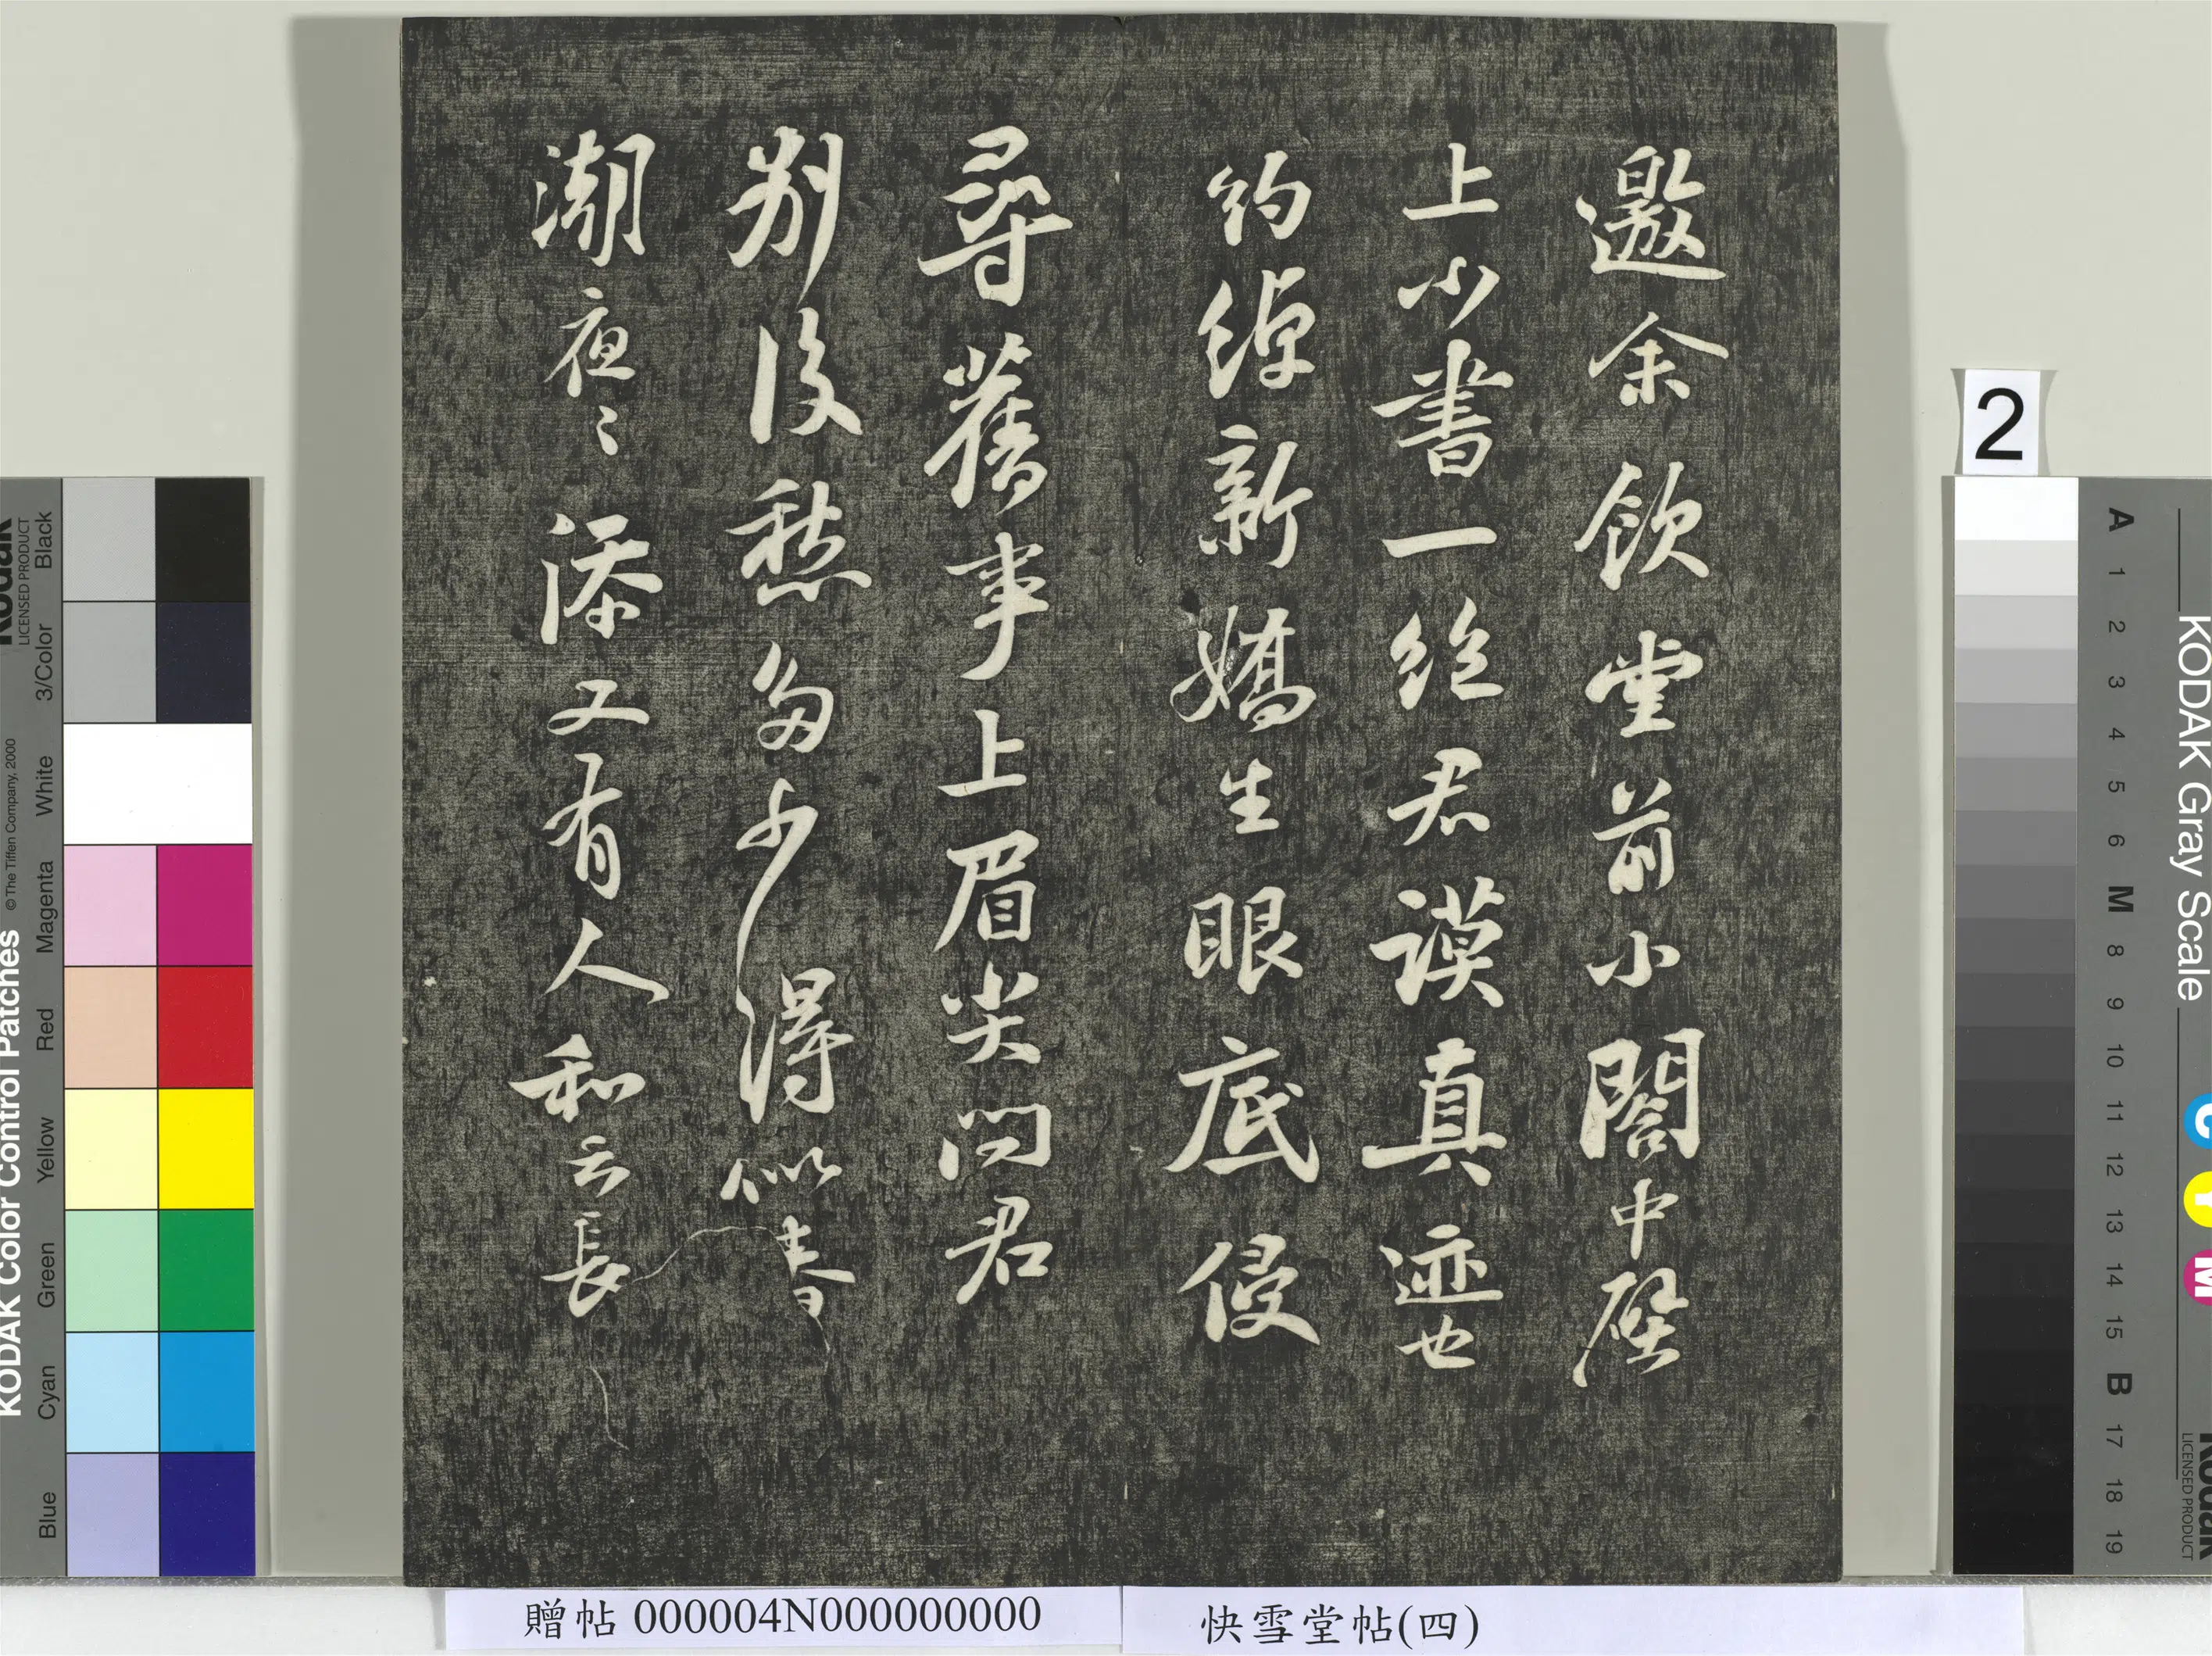 邀余飲堂前小閣中壁
上小書一絕君謨真迹也
約綽新嬌生眼底侵
尋舊事上眉尖問君
別後愁多少得似春
潮夜〻添又有人和云長
2
贈帖 000004N000000000
快雪堂帖(四)
KODAK Color Control Patches
© The Tiffen Company, 2000
Kodak
LICENSED PRODUCT
Blue
Cyan
Green
Yellow
Red
Magenta
White
3/Color
Black
KODAK Gray Scale
A 1 2 3 4 5 6 M 8 9 10 11 12 13 14 15 B 17 18 19
C Y M
Kodak
LICENSED PRODUCT